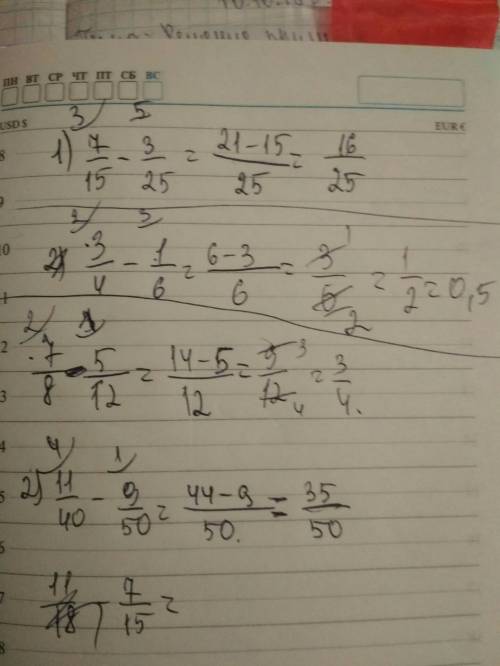 ПН ВТ СР ЧТ ПТ СБ ВС
USD $ EUR €
3 5
8 1) 7/15 - 3/25 = 21-15/25 = 16/25
9
3 3
10 2) 3/4 - 1/6 = 6-3/6 = 3/6 1/2 = 1/2 = 0,5
2 1
2 7/8 - 5/12 = 14-5/12 = 9/12 3/4 = 3/4.
3
4 4 1
5 2) 11/40 - 9/50 = 44-9/50. = 35/50
7 11/18 - 7/15 =
8